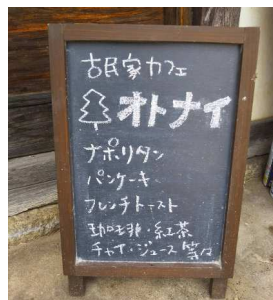 古民家カフェ
オトナイ
ナポリタン
パンケーキ
フレンチトースト
珈琲・紅茶
チャイ・ジュース 等々